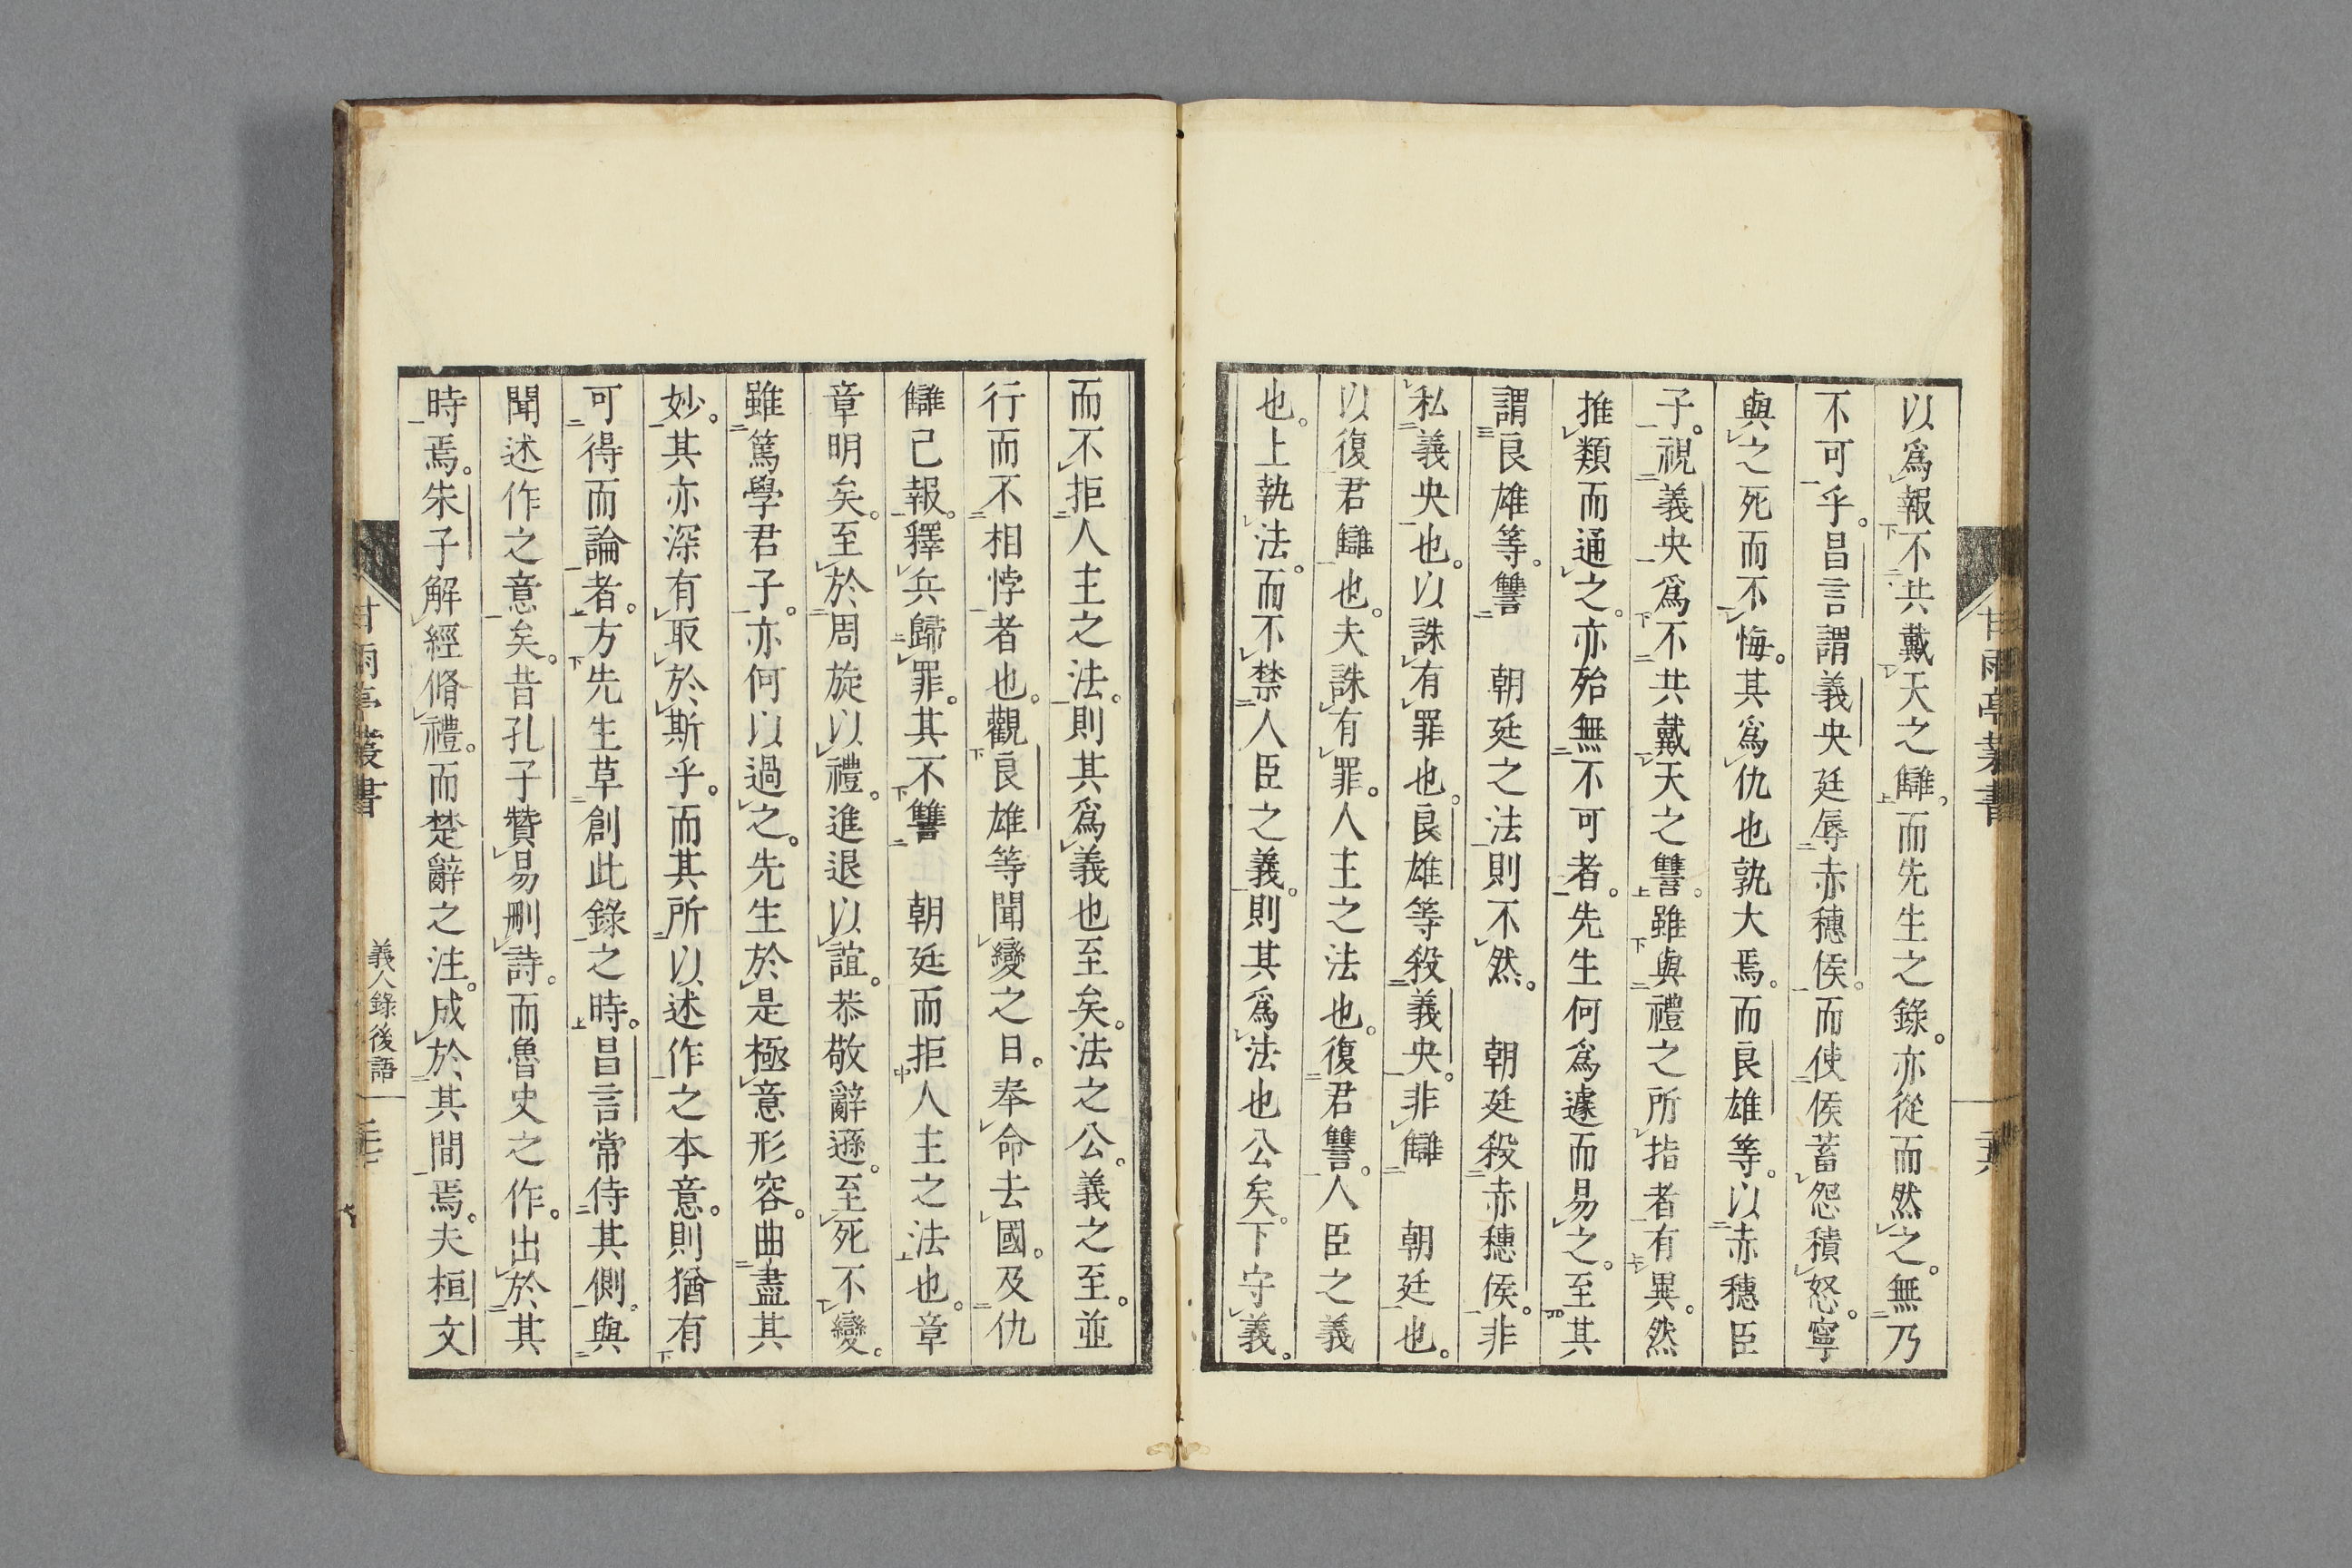 以爲報不共戴天之讎。而先生之錄。亦從而然之。無乃
不可乎。昌言謂義央廷辱赤穗侯。而使侯蓄怨積怒。寧
與之死而不悔。其爲仇也孰大焉。而良雄等。以赤穗臣
子。視義央爲不共戴天之讐。雖與禮之所指者有異。然
推類而通之。亦殆無不可者。先生何爲遽而易之。至其
謂良雄等。讐 朝廷之法則不然。 朝廷殺赤穗侯。非
私義央也。以誅有罪也。良雄等殺義央。非讎 朝廷也。
以復君讎也。夫誅有罪。人主之法也。復君讐。人臣之義
也。上執法。而不禁人臣之義。則其爲法也公矣。下守義。
而不拒人主之法。則其爲義也至矣。法之公。義之至。並
行而不相悖者也。觀良雄等聞變之日。奉命去國。及仇
讎已報。釋兵歸罪。其不讐 朝廷而拒人主之法也。章
章明矣。至於周旋以禮。進退以誼。恭敬辭遜。至死不變。
雖篤學君子。亦何以過之。先生於是極意形容。曲盡其
妙。其亦深有取於斯乎。而其所以述作之本意。則猶有
可得而論者。方先生草創此錄之時。昌言常侍其側。與
聞述作之意矣。昔孔子贊易刪詩。而魯史之作。出於其
時焉。朱子解經脩禮。而楚辭之注。成於其間焉。夫桓文
甘雨亭叢書
義人錄後語